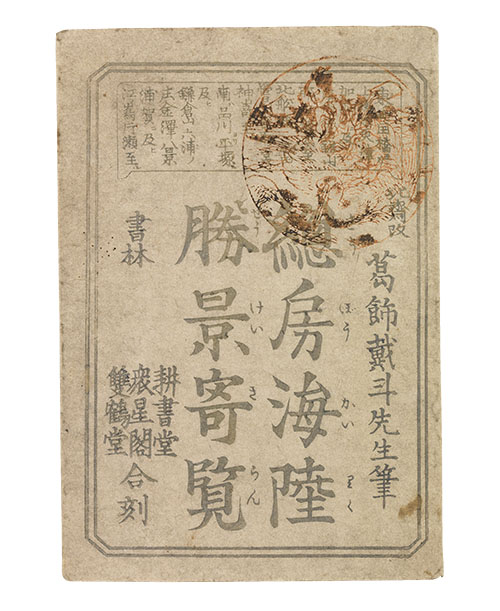 北斎改
葛飾戴斗先生筆
總房海陸
ほう かい りく
勝景寄覧
けい き らん
南品川平塚
及
鎌倉六浦ノ
庄金澤ノ景
浦賀 及
書林
耕書堂
衆星閣
雙鶴堂
合刻